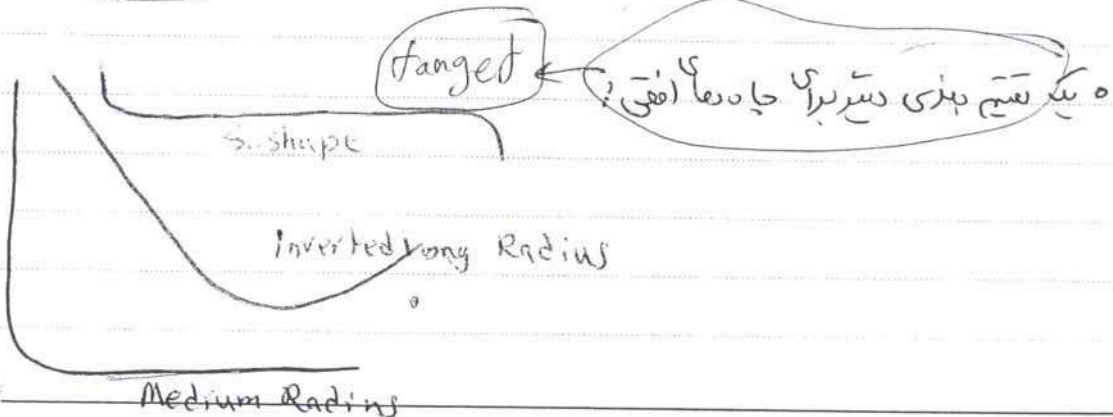 یک تقسیم بندی دیگر برای چاه های افقی:
tanged
S. shape
Inverted Long Radius
Medium Radius